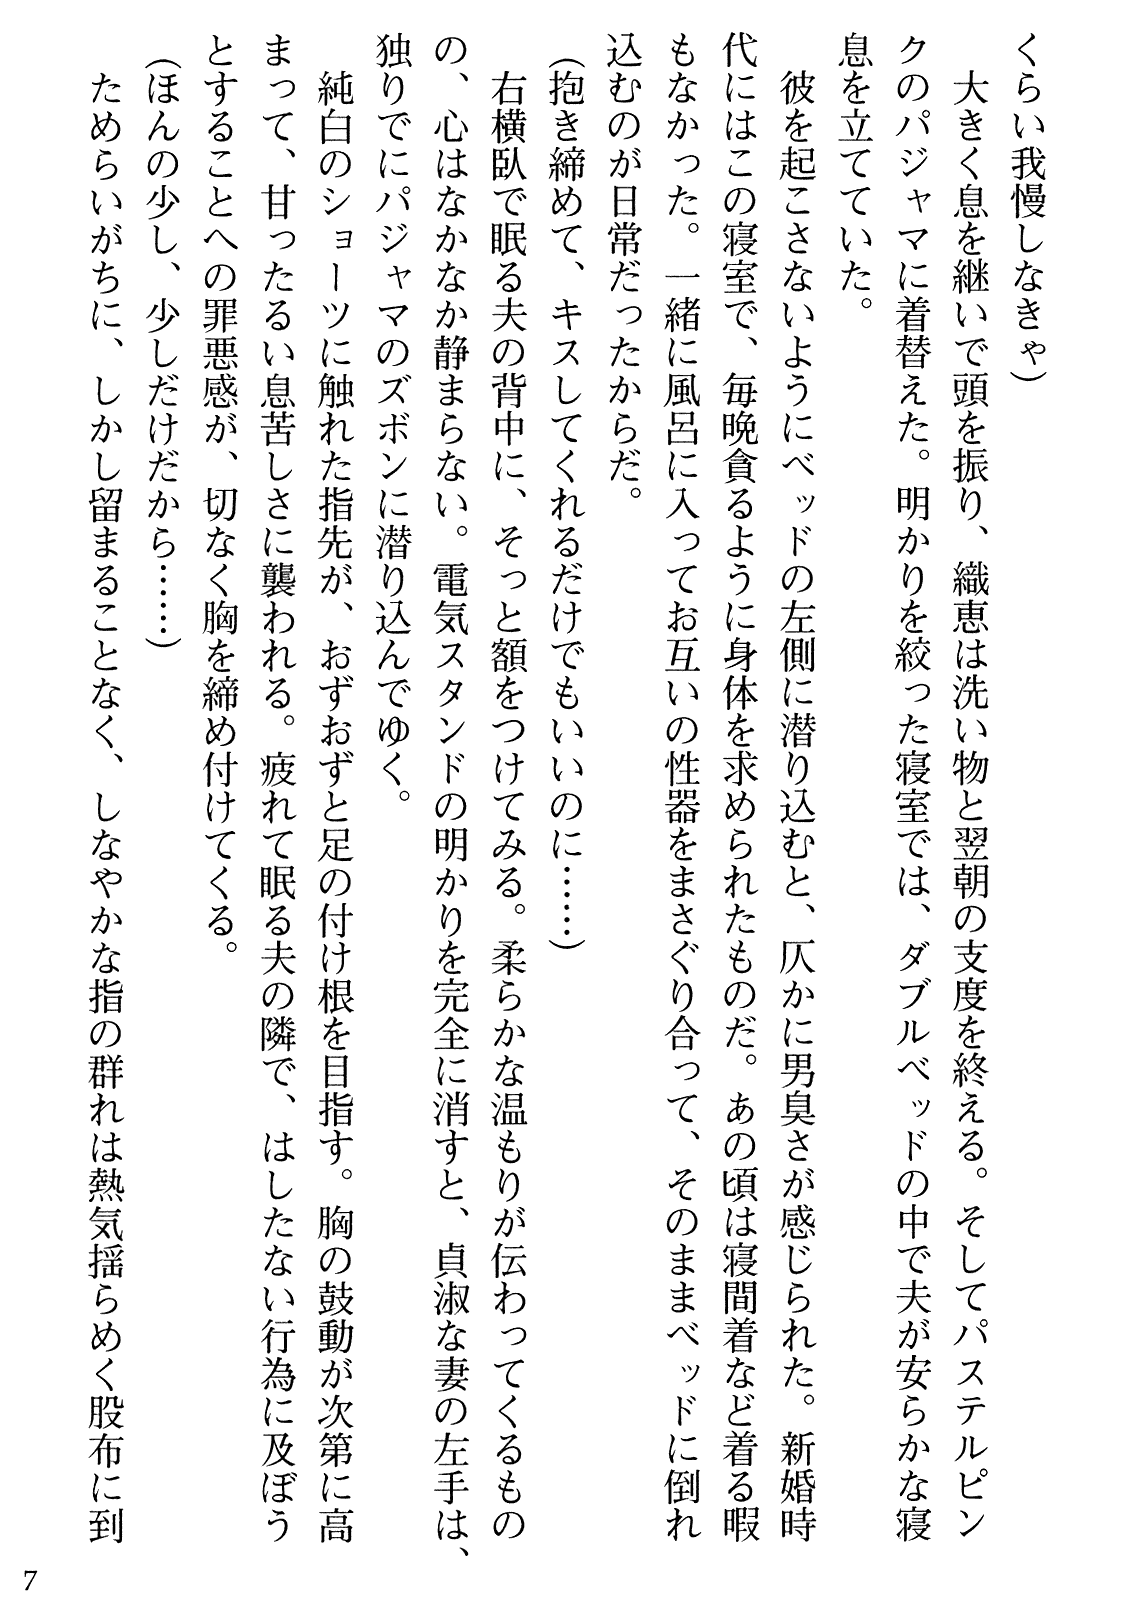 くらい我慢しなきゃ)
　大きく息を継いで頭を振り、織恵は洗い物と翌朝の支度を終える。そしてパステルピン
クのパジャマに着替えた。明かりを絞った寝室では、ダブルベッドの中で夫が安らかな寝
息を立てていた。
　彼を起こさないようにベッドの左側に潜り込むと、仄かに男臭さが感じられた。新婚時
代にはこの寝室で、毎晩貪るように身体を求められたものだ。あの頃は寝間着など着る暇
もなかった。一緒に風呂に入ってお互いの性器をまさぐり合って、そのままベッドに倒れ
込むのが日常だったからだ。
(抱き締めて、キスしてくれるだけでもいいのに……)
　右横臥で眠る夫の背中に、そっと額をつけてみる。柔らかな温もりが伝わってくるもの
の、心はなかなか静まらない。電気スタンドの明かりを完全に消すと、貞淑な妻の左手は、
独りでにパジャマのズボンに潜り込んでゆく。
　純白のショーツに触れた指先が、おずおずと足の付け根を目指す。胸の鼓動が次第に高
まって、甘ったるい息苦しさに襲われる。疲れて眠る夫の隣で、はしたない行為に及ぼう
とすることへの罪悪感が、切なく胸を締め付けてくる。
(ほんの少し、少しだけだから……)
　ためらいがちに、しかし留まることなく、しなやかな指の群れは熱気揺らめく股布に到
7